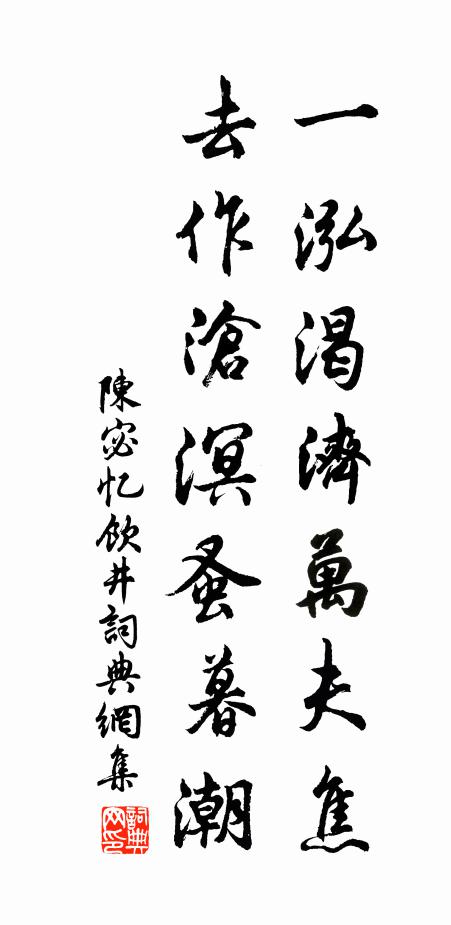 一泓渴濟萬夫焦
去作滄溟蚤暮潮
陳宓忆飲井詞典網集
詞典网印